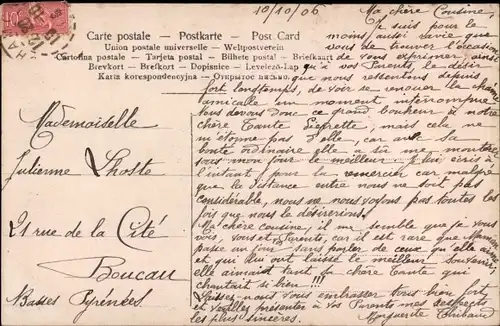 10/10/06
Carte postale - Postkarte - Post Card
Union postale universelle - Weltpostverein
Cartolina postale - Tarjeta postal - Bilhete postal - Briefkaart
Brevkort - Brefkort - Dopisnice - Levelező-Lap
Karta korespondencyjna - Открытое письмо.
Mademoiselle
Julienne Lhoste
21 rue de la Cité
Boucau
Basses Pyrénées
Ma chère Cousine
Je suis pour le
moins aussi ravie que
vous de trouver l'occasion
de vous exprimer ainsi
qu'à vos Parents le désir
que nous ressentons depuis
fort longtemps, de voir se renouer la chaîne
amicale un moment interrompue
Nous devons donc ce grand bonheur à notre
chère Tante mais cela ne
m'étonne pas d'elle, car avec sa
bonté ordinaire elle a su me montrer
sous mon jour le meilleur. Je lui écris à
l'instant pour la remercier car malgré
que la distance entre nous ne soit pas
considérable, nous ne nous voyons pas toutes les
fois que nous le désirerions.
Ma chère cousine, il me semble que je vous
vois, vous et vos Parents, car il est rare que
passe un jour sans parler de ceux qu'elle aime
et qui lui ont laissé le meilleur souvenir
elles aimaient tant la chère Tante qui
chantait si bien !!!
Laissez-nous vous embrasser tous bien fort
et veuillez présenter à vos Parents mes respects
les plus sincères. Marguerite Thibaud